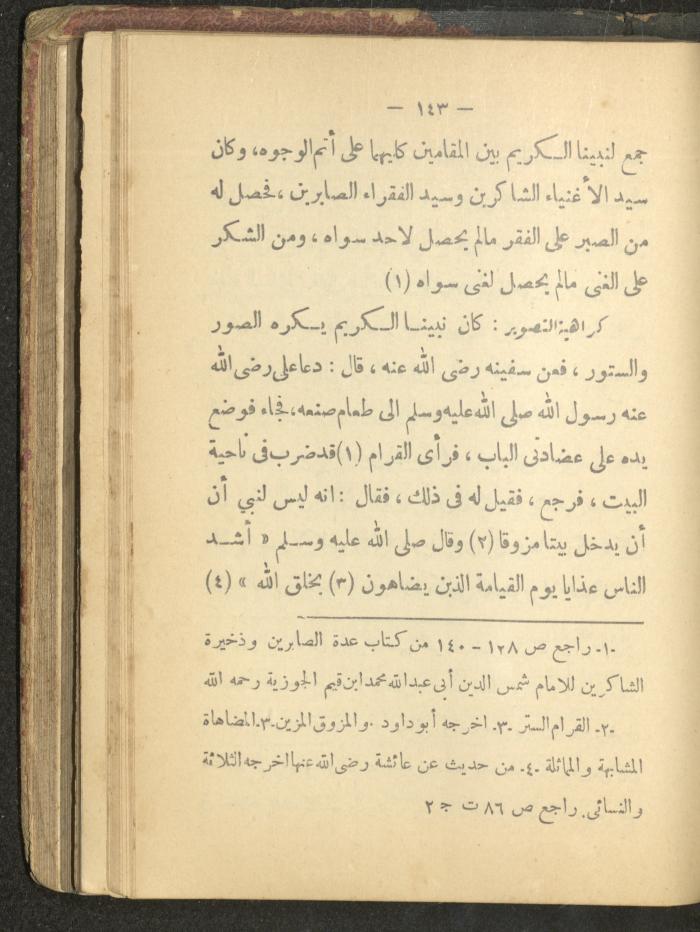 — ١٤٣ —
جمع لنبينا الـكريم بين المقامين كليهما على أتم الوجوه، وكان
سيد الأغنياء الشاكرين وسيد الفقراء الصابرين ، فحصل له
من الصبر على الفقر مالم يحصل لاحد سواه ، ومن الشكر
على الغنى مالم يحصل لغنى سواه (١)
كراهية التصوير : كان نبينـا الـكريم يـكره الصور
والستور ، فعن سفينه رضى الله عنه ، قال : دعا على رضى الله
عنه رسول الله صلى الله عليه وسلم الى طعام صنعه، فجاء فوضع
يده على عضادتى الباب ، فرأى القرام (١) قد ضرب فى ناحية
البيت ، فرجع ، فقيل له فى ذلك ، فقال : انه ليس لنبي أن
أن يدخل بيتا مزوقا (٢) وقال صلى الله عليه وسـلم « أشـد
الناس عذايا يوم القيامة الذين يضاهون (٣) بخلق الله » (٤)
-١- راجع ص ١٢٨ – ١٤٠ من كـتاب عدة الصابرين وذخيرة
الشاكرين للامام شمس الدين أبى عبد الله محمد ابن قيم الجوزية رحمه الله
-٢- القرام الستر -٣- اخرجه أبو داود . والمزوق المزين -٣- المضاهاة
المشابهة والمماثلة -٤- من حديث عن عائشة رضى الله عنها اخرجه الثلاثة
والنسائى. راجع ص ٨٦ ت ج ٢